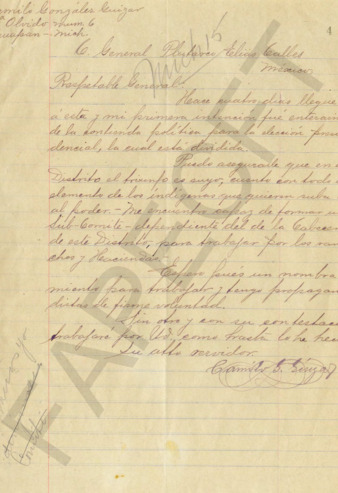 Camilo González Guizar
Olvido num 6
Uruapan - Mich
4
C. General Plutarco Elías Calles
México
Mich 15
Respetable General:-
Hace cuatro días llegué
á esta, y mi primera intención fué
de la contienda política para la elección
dencial, la cual está dividida.
Puedo asegurarle que en
Distrito, el triunfo es suyo; cuento con todo
elemento de los indígenas que quieren suba
al poder.- Me encuentro capaz de formar
Sub-Comité- dependiente del de la Cabecera
de este Distrito, para trabajar por los ran
chos y Haciendas.-
Espero pues un nombra
miento para trabajar y tengo propagan
distas de firme voluntad.
Sin otro y con su contestac
trabajaré por Ud, como hasta lo he hec
Su atto servidor.
Camilo G. Guizar
FAPECFT